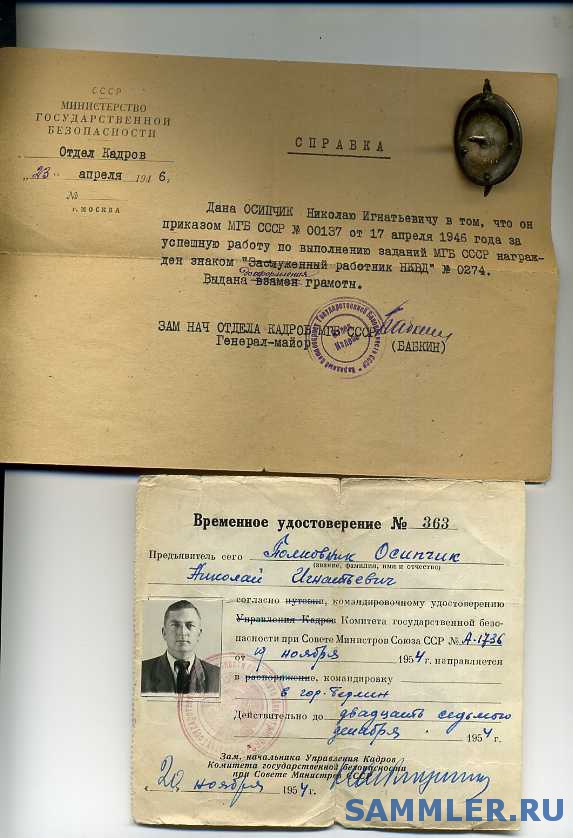 СССР
МИНИСТЕРСТВО
ГОСУДАРСТВЕННОЙ
БЕЗОПАСНОСТИ
Отдел Кадров
„23" апреля 1946 г.
№
г. МОСКВА
СПРАВКА
Дана ОСИПЧИК Николаю Игнатьевичу в том, что он
приказом МГБ СССР № 00137 от 17 апреля 1946 года за
успешную работу по выполнению заданий МГБ СССР награж-
ден знаком "Заслуженный работник НКВД" № 0274.
до оформления
Выдана взамен грамоты.
ЗАМ НАЧ ОТДЕЛА КАДРОВ МГБ СССР
Генерал-майор (БАБКИН)
Временное удостоверение № 363
Предъявитель сего Полковник Осипчик
(звание, фамилия, имя и отчество)
Николай Игнатьевич
согласно путевки, командировочному удостоверению
Управления Кадров Комитета государственной безо-
пасности при Совете Министров Союза ССР № А-1736
от 19 ноября 1954 г. направляется
в распоряжение, командировку
в гор. Берлин
Действительно до двадцать седьмого
декабря 1954 г.
Зам. начальника Управления Кадров
Комитета государственной безопасности
при Совете Министров СССР
„20" ноября 1954 г.
SAMMLER.RU